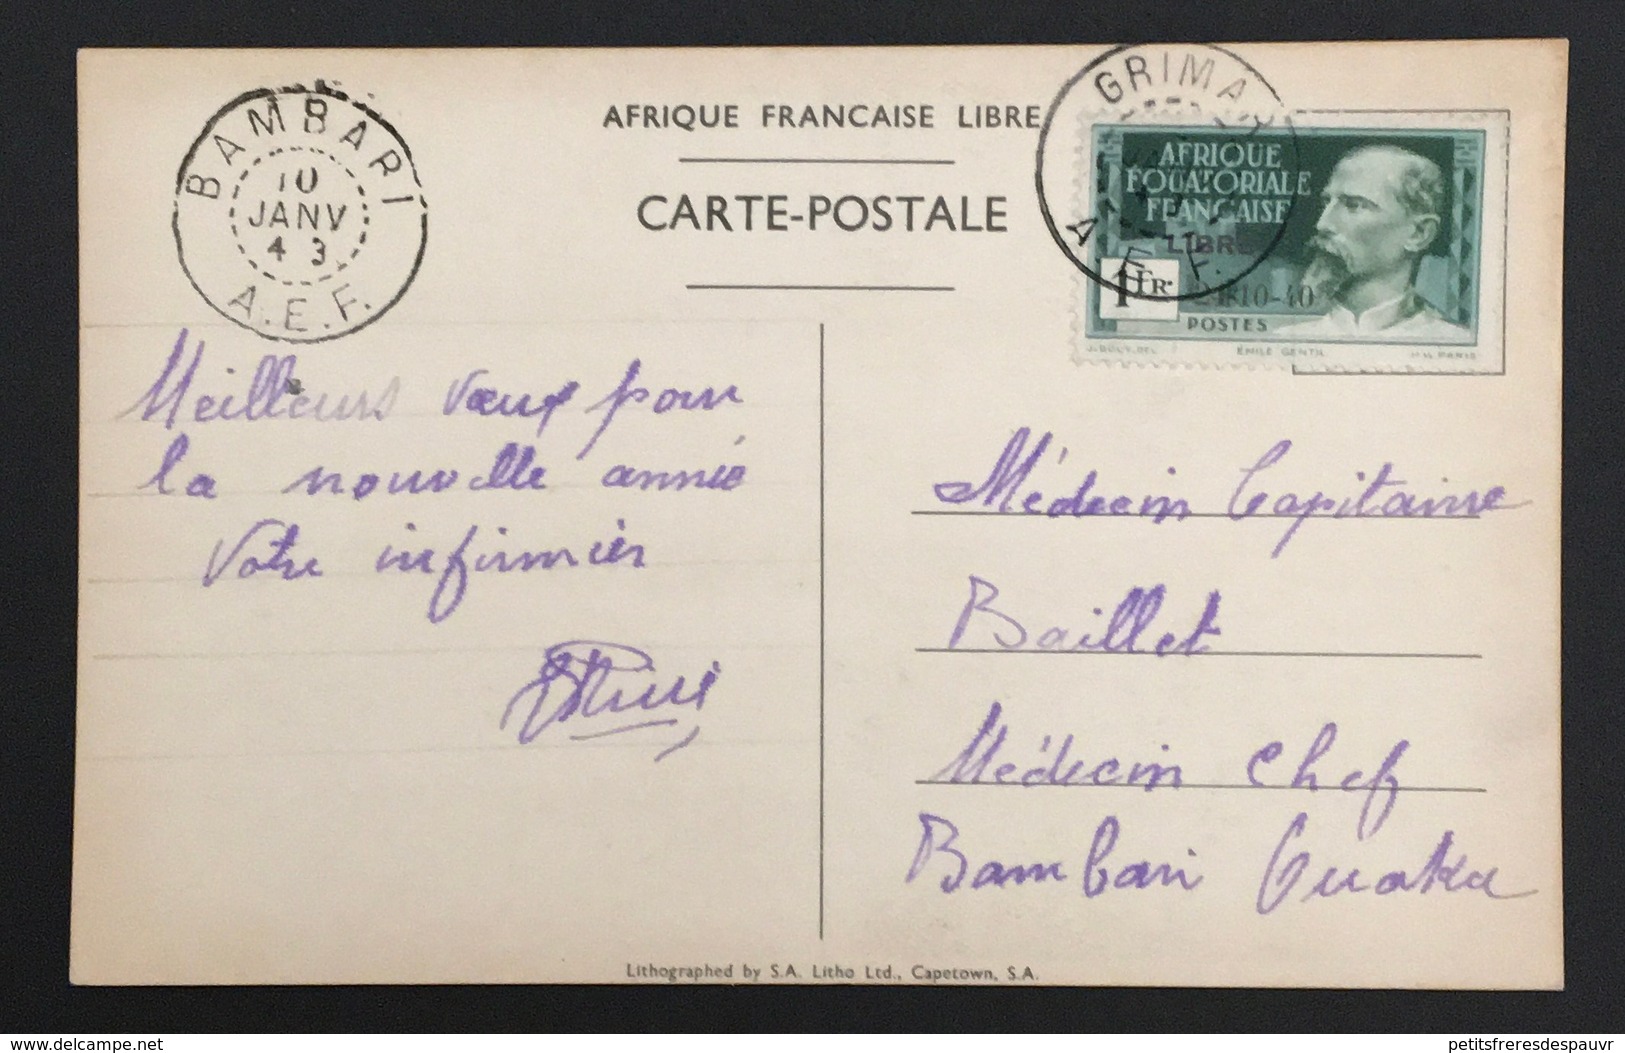 BAMBARI
10
JANV
43
A.E.F.
AFRIQUE FRANCAISE LIBRE
CARTE-POSTALE
GRIMA
A.E.F.
AFRIQUE
EQUATORIALE
FRANÇAISE
LIBRE
1FR.
24-10-40
POSTES
ÉMILE GENTIL
Meilleurs vœux pour
la nouvelle année
Votre infirmier
Médecin Capitaine
Baillet
Médecin Chef
Bambari Ouaka
Lithographed by S.A. Litho Ltd., Capetown, S.A.
delcampe.net
petitsfreresdespauvr